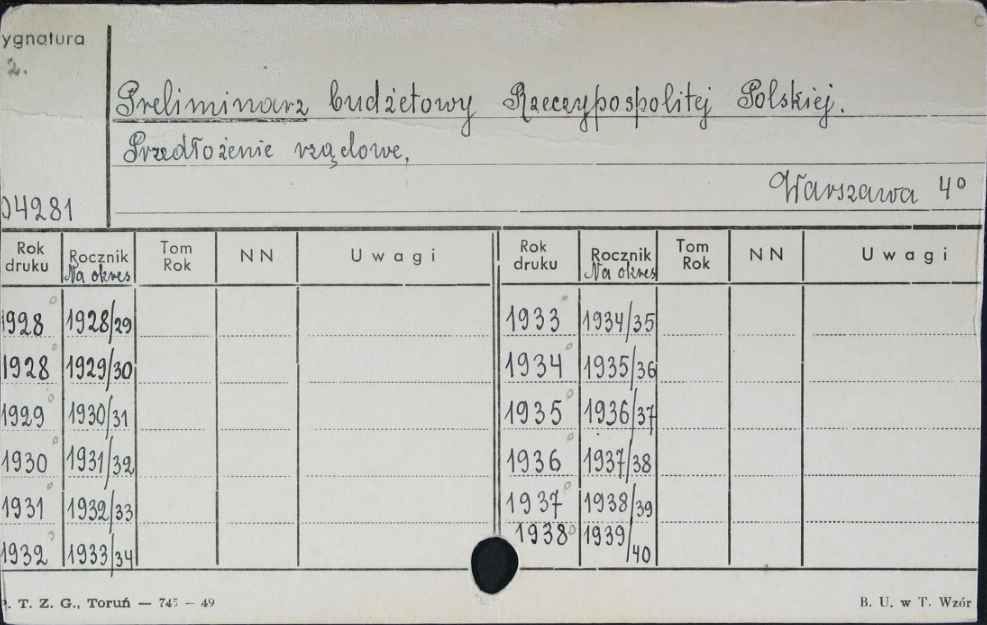 ygnatura
2.
Preliminarz budżetowy Rzeczypospolitej Polskiej.
Przedłożenie rządowe,
Warszawa 4°
04281
Rok druku Rocznik Na okres Tom Rok NN Uwagi Rok druku Rocznik Na okres Tom Rok NN Uwagi
1928 1928/29 1933 1934/35
1928 1929/30 1934 1935/36
1929 1930/31 1935 1936/37
1930 1931/32 1936 1937/38
1931 1932/33 1937 1938/39
1932 1933/34 1938 1939/40
. T. Z. G., Toruń — 745 — 49 B. U. w T. Wzór